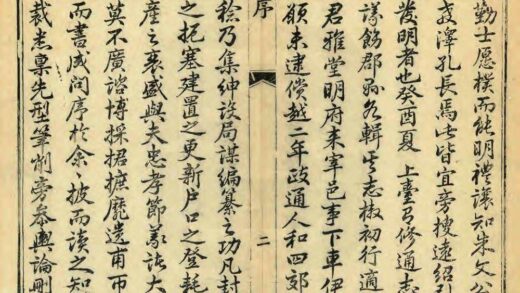 勤士愿樸而能明禮讓知朱文公
教澤孔長焉此皆宜旁搜遠紹引
發明者也癸酉夏上臺有修通志
議飭郡縣各輯其志檄初行適
君雅堂明府来宰邑事下車伊
願未逮償越二年政通人和四郊
序
二
稔乃集紳設局謀編纂之功凡封
之扼塞建置之更新户口之登耗
產之衰盛與夫忠孝節義諸大
莫不廣諮博採捃摭靡遺甫帀
而書成问序於余〻披而讀之知
裁悉稟先型筆削旁參輿論刪